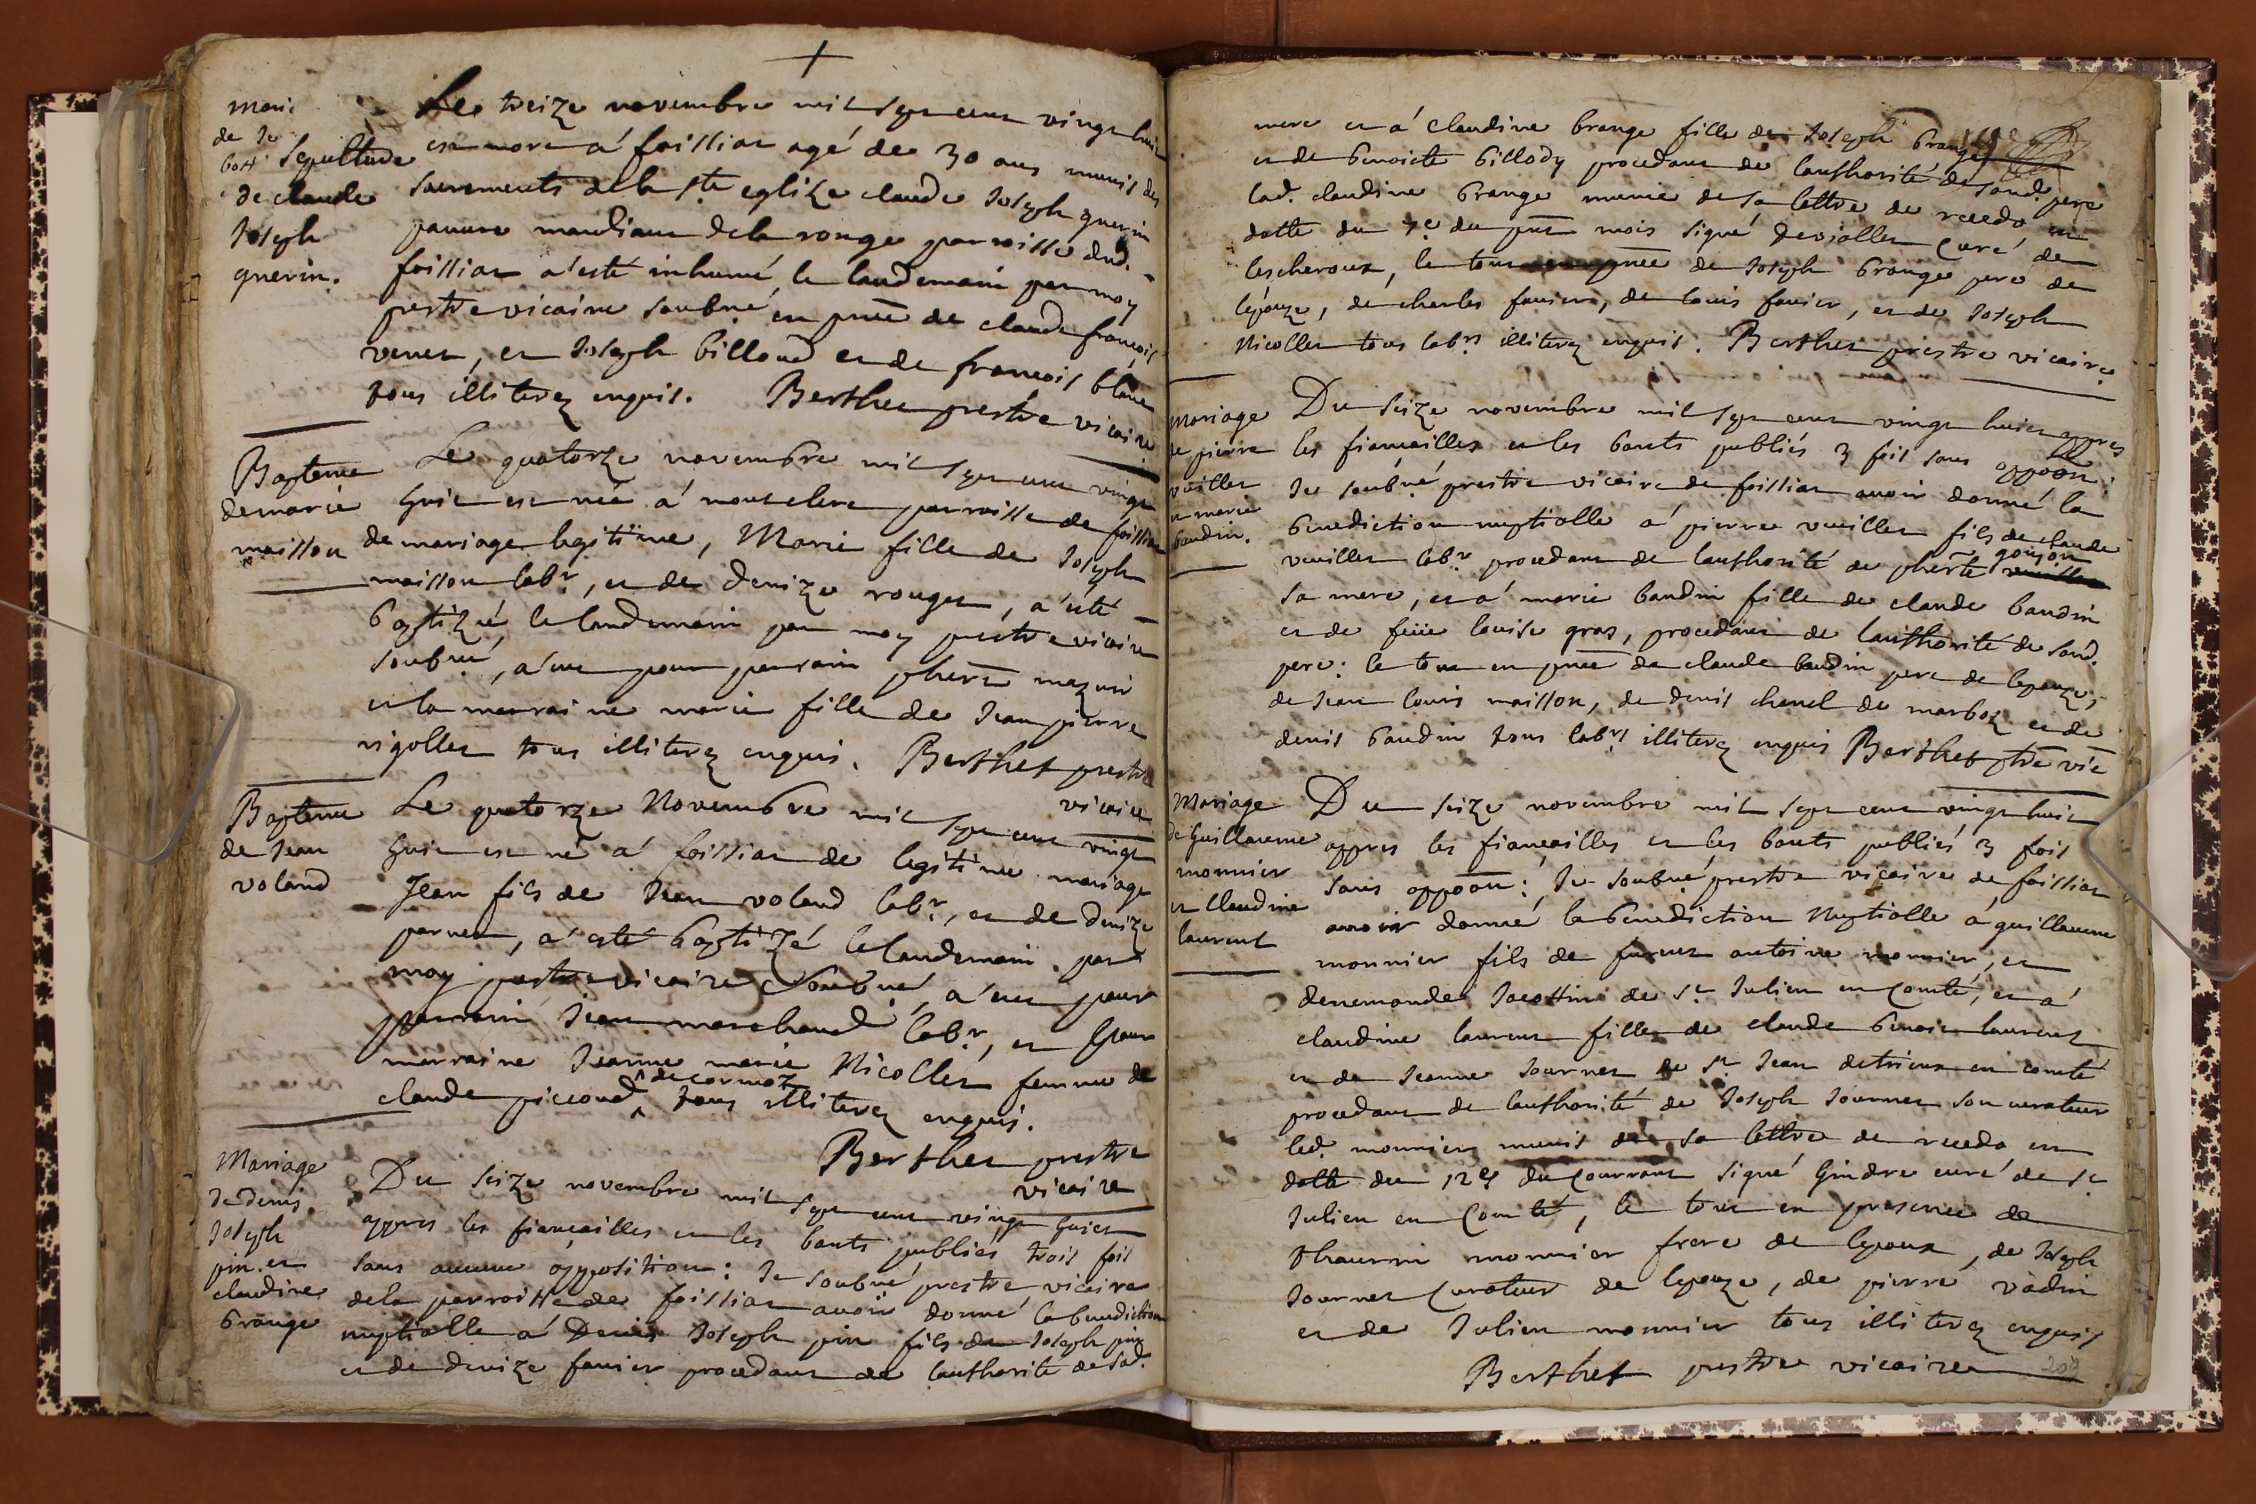 Sepulture
de claude
Joseph
guerin.
Le treize novembre mil sept cent vingt huit
est mort á foissiat agé de 30 ans munis des
sacrements dela ste eglize claude Joseph guerin
pauvre mandiant dela rouge parroisse dud.
foissiat a'esté inhumé le landemain par moy
prestre vicaire soubné en pnce de claude françois
venet, et Joseph billoud et de françois blanc
tous illiterez enquis. Berthet prestre vicaire
Bapteme
de marie
maisson
Le quatorze novembre mil sept cent vingt
huit est née a' montclere parroisse de foissiat
de mariage legitime, Marie fille de Joseph
maisson labr, et de denize rouget, a'été
baptizée le landemain par moy prestre vicaire
soubné, a'eue pour parrain phert mazuir
et la marraine marie fille de Jean pierre
rigollet tous illiterez enquis. Berthet prestre
vicaire
Bapteme
de Jean
voland
Le quatorze Novembre mil sept cent vingt
huit est né á foissiat de legitime mariage
Jean fils de Jean voland labr, et de denize
parnet, a'esté baptizé le landemain par
moy prestre vicaire Soubné, a'eut pour
parrain Jean marchand labr, et pour
marraine Jeanne marie Nicollet femme de
claude piccoud de cormoz tous illiterez enquis.
Berthet prestre
vicaire
Mariage
de denis
Joseph
pin et
claudine
brange
Du seize novembre mil sept cent vingt huict
appres les fiançailles et les bants publiés trois fois
sans aucune opposition: Je soubné prestre vicaire
dela parroisse de foissiat avoir donné la benediction
nuptialle á Denis Joseph pin fils de Joseph pin
et de denize favier procedant de lauthorité de sad.
mere et á claudine brange fille de Joseph brange
et de benoiste billody procedant de lauthorité de sond. pere
lad. claudine brange munie de sa lettre de recedo en
datte du 7e du pnt mois signé deviollet curé de
lescheroux, le tout en pnce de Joseph brange pere de
lépouze, de charles favier, de louis favier, et de Joseph
Nicollet tous labrs illiterez enquis. Berthet prestre vicaire
Mariage
de pierre
vuillet
et marie
baudin.
Du seize novembre mil sept cent vingt huict appres
les fiançailles et les bants publiés 3 fois sans oppoon:
Je soubné prestre vicaire de foissiat avoir donné la
benediction nuptialle á pierre vuillet fils de claude
vuillet labr procedant de lauthorité de pherte goujon
sa mere, et á marie baudin fille de claude baudin
et de feüe louise gras, procedant de lauthorité de sond.
pere: le tout en pnce de claude baudin pere de lepouze,
de Jean louis maisson, de denis chanel de marboz et de
denis baudin tous labrs illiterez enquis Berthet ptre vic
Mariage
de Guillaume
monnier
et Claudine
laurent
Du seize novembre mil sept cent vingt huit
appres les fiançailles et les bants publiés 3 fois
sans oppoon: Je soubné prestre vicaire de foissiat
avoir donné la benediction Nuptialle á guillaume
monnier fils de furent antoine monnier, et
de Jacottin de st Julien en comté, et á
claudine laurent fille de claude benoit laurent
et de Jeanne Journet de st Jean detrieux en comté
procedant de lauthorité de Joseph Journet son curateur
led. monnier munis de sa lettre de recedo en
datte du 12e du courrant signé Gindre curé de st
Julien en Comté, le tout en presence de
thaurin monnier frere de lepoux, de Joseph
Journet Curateur de lepouze, de pierre vadin
et de Julien monnier tous illiterez enquis
Berthet prestre vicaire